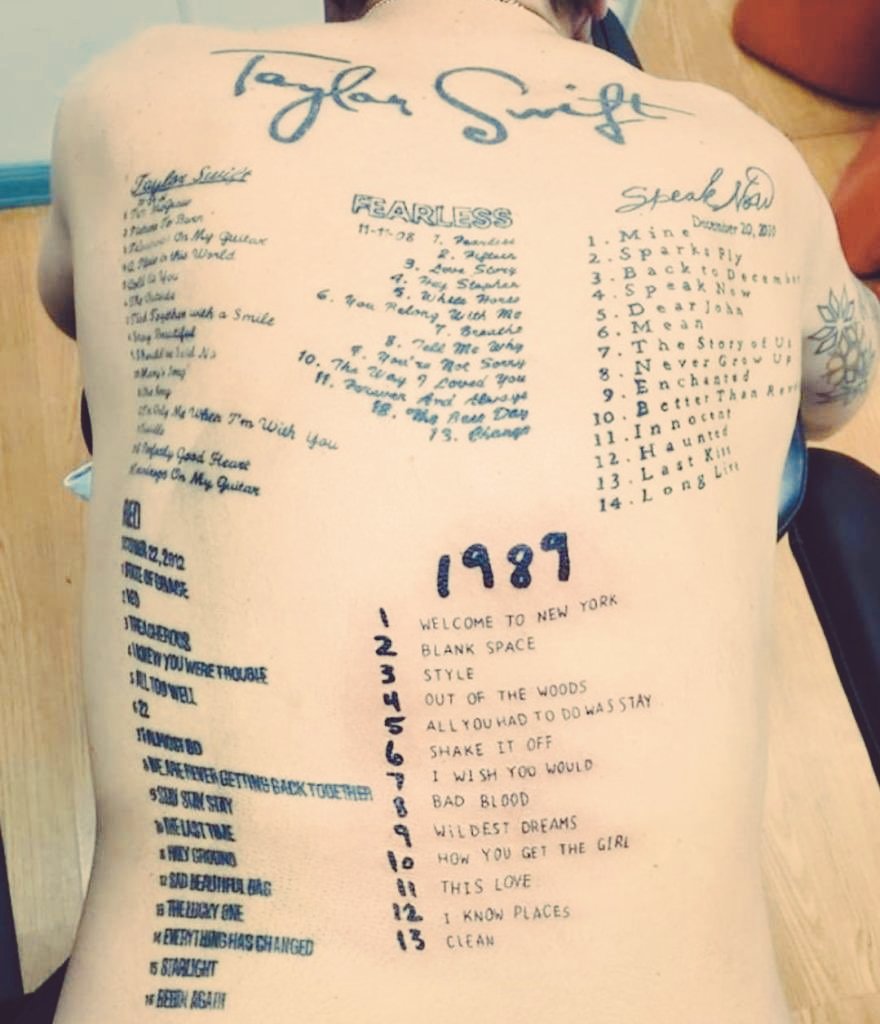 Taylor Swift
Taylor Swift
On My Guitar
in this World
The Outside
Together with a Smile
Stay Beautiful
Should've Said No
Mary's Song
Our Song
Only Me When I'm With You
Invisible
Perfectly Good Heart
Teardrops On My Guitar
FEARLESS
11-11-08 1. Fearless
2. Fifteen
3. Love Story
4. Hey Stephen
5. White Horse
6. You Belong With Me
7. Breathe
8. Tell Me Why
9. You're Not Sorry
10. The Way I Loved You
11. Forever And Always
12. The Best Day
13. Change
Speak Now
December 20, 2010
1. Mine
2. Sparks Fly
3. Back to December
4. Speak Now
5. Dear John
6. Mean
7. The Story of Us
8. Never Grow Up
9. Enchanted
10. Better Than
11. Innocent
12. Haunted
13. Last Kiss
14. Long Live
RED
22, 2012
1 STATE OF GRACE
2 RED
3 TREACHEROUS
4 I KNEW YOU WERE TROUBLE
5 ALL TOO WELL
6 22
7 I ALMOST DO
8 WE ARE NEVER GETTING BACK TOGETHER
9 STAY STAY STAY
10 THE LAST TIME
11 HOLY GROUND
12 SAD BEAUTIFUL
13 THE LUCKY ONE
14 EVERYTHING HAS CHANGED
15 STARLIGHT
16 BEGIN AGAIN
1989
1 WELCOME TO NEW YORK
2 BLANK SPACE
3 STYLE
4 OUT OF THE WOODS
5 ALL YOU HAD TO DO WAS STAY
6 SHAKE IT OFF
7 I WISH YOU WOULD
8 BAD BLOOD
9 WILDEST DREAMS
10 HOW YOU GET THE GIRL
11 THIS LOVE
12 I KNOW PLACES
13 CLEAN